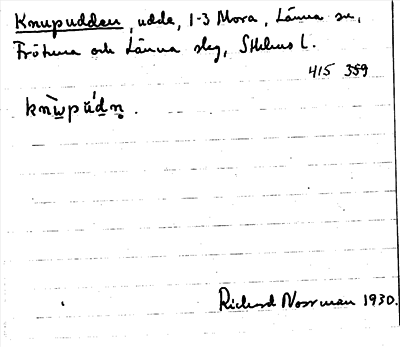 Knupudden, udde, 1-3 Mora, Länna sn,
Frötuna och Länna slg, Sthlms l.
415 359
kǹw̲pǘd̲n̥.
Richard Norrman 1930.